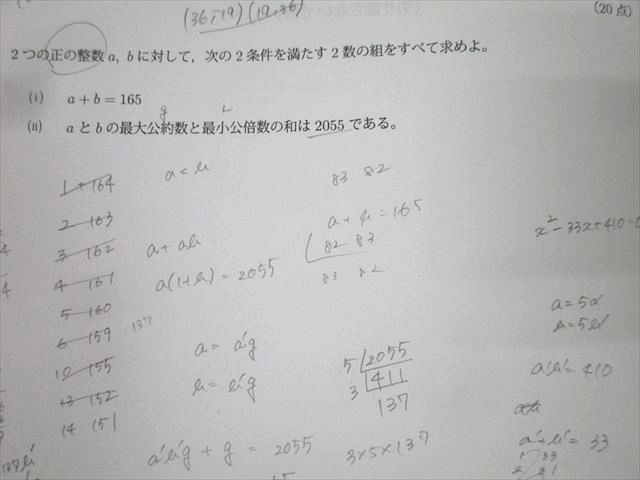 (36, 19) (19, 36)
(20 点)
2 つの正の整数 a, b に対して，次の 2 条件を満たす 2 数の組をすべて求めよ。
(i) a + b = 165
g L
(ii) a と b の最大公約数と最小公倍数の和は 2055 である。
1 + 164
a < b
83 82
2 - 163
a + b = 165
3 - 162
a + ab
82 83
x² - 33x + 410 = 0
4 - 161
a(1+b) = 2055
83 82
5 - 160
137
a = 5a'
6 - 159
a = a'g
b = 5b'
10 - 155
b = b'g
5 2055
a'b' = 410
13 - 152
3 411
14 151
137
a'b'g + g = 2055
3 × 5 × 137
a' + b' = 33
137b'
1 33
2 31